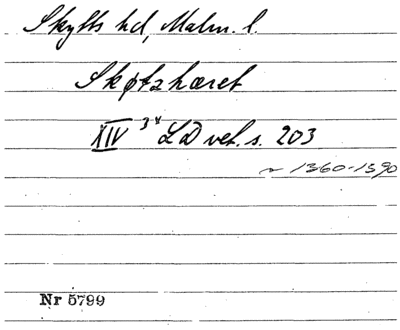 Skytts hd, Malm. l.
Skøtzhæret
XIV 3
LD vet. s. 203
~ 1360-1390
Nr 5799